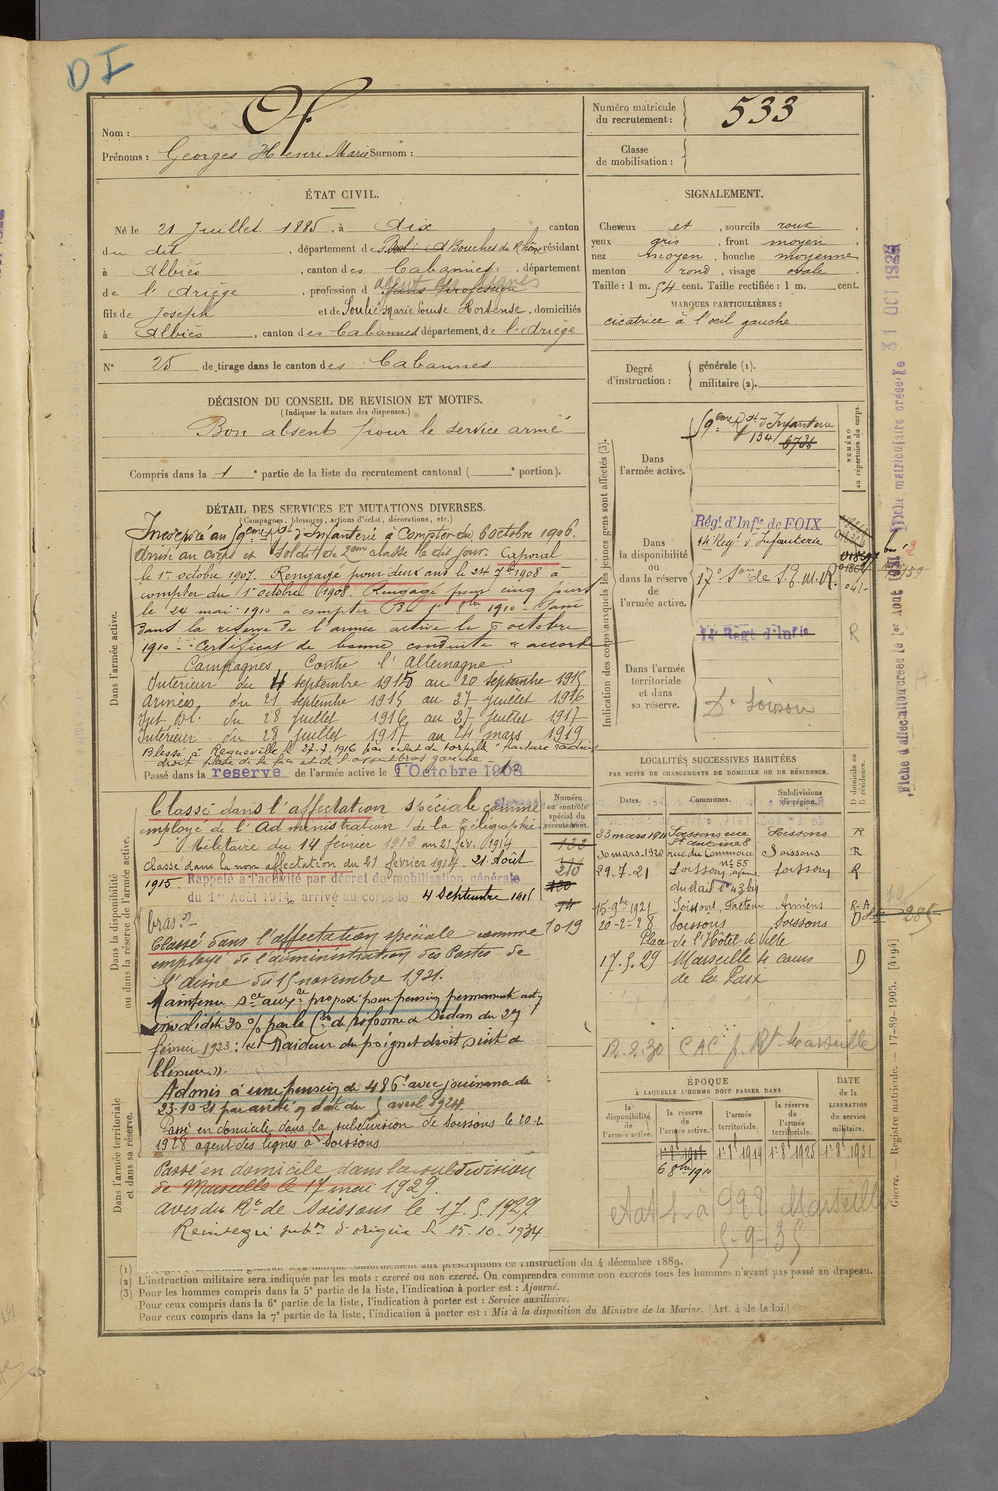 D I
Nom :
Prénoms : Georges Henri Marie Surnom :
Numéro matricule
du recrutement : 533
Classe
de mobilisation :
ÉTAT CIVIL.
Né le 21 Juillet 1885, à dix canton
du dit, département des Bouches du Rhône résidant
à Albiès, canton des Cabannes, département
de l'Ariège, profession d'agent des lignes
fils de Joseph et de Soulié Marie Louise Hortense, domiciliés
à Albiès, canton des Cabannes département de l'Ariège
N° 25 de tirage dans le canton des Cabannes
SIGNALEMENT.
Cheveux et, sourcils roux,
yeux gris, front moyen,
nez moyen, bouche moyenne
menton rond, visage ovale
Taille : 1 m. 54 cent. Taille rectifiée : 1 m. cent.
MARQUES PARTICULIÈRES :
cicatrice à l'œil gauche
Degré
d'instruction :
générale (1).
militaire (2).
DÉCISION DU CONSEIL DE REVISION ET MOTIFS.
(Indiquer la nature des dispenses.)
Bon absent pour le service armé
Compris dans la 1e partie de la liste du recrutement cantonal ( e portion).
DÉTAIL DES SERVICES ET MUTATIONS DIVERSES.
(Campagnes, blessures, actions d'éclat, décorations, etc.)
Dans l'armée active.
Incorporé au 59eme Rgt d'Infanterie à compter du 6 octobre 1906.
Arrivé au corps et soldat de 2eme classe le dit jour. Caporal
le 1er octobre 1907. Rengagé pour deux ans le 24 7bre 1908 à
compter du 1er octobre 1908. Rengagé pour cinq jours
le 24 mai 1910 à compter du 1er 8bre 1910. Passé
dans la réserve de l'armée active le 6 octobre
1910. Certificat de bonne conduite "accordé
Campagnes Contre l'Allemagne
Intérieur du 4 septembre 1915 au 20 septembre 1915
Armées du 21 septembre 1915 au 27 juillet 1916
Int. Bl. du 28 juillet 1916 au 27 juillet 1917
Intérieur du 28 juillet 1917 au 24 mars 1919
Blessé à le 27-7-1916 par éclat de torpille "fracture radius
droit plaie de la et de l'avant bras gauche
Passé dans la reserve de l'armée active le 1 Octobre 1908
Indication des corps auxquels les jeunes gens sont affectés (3).
NUMÉRO
au répertoire du corps.
Dans
l'armée active.
59eme Rgt d'Infanterie
134 6736
Dans
la disponibilité
ou
dans la réserve
de
l'armée active.
Régt. d'Infie de FOIX
14e Regt d'Infanterie
17e Son de S.E.M.R.
Dans l'armée
territoriale
et dans
sa réserve.
14 Regt d'Infie
R
Dt Soissons
Dans la disponibilité
ou dans la réserve de l'armée active.
Numéro
au contrôle
spécial du
recrutement.
Classé dans l'affectation spéciale comme
employé de l'Administration de la Télégraphie
Militaire du 14 février 1912 au 21 fév. 1914
Classé dans la non affectation du 21 février 1914. 21 Août
1915. Rappelé à l'activité par décret de mobilisation générale
du 1er Août 1914, arrivé au corps le 4 septembre 1915
bras".
Classé dans l'affectation spéciale comme
employé de l'administration des Postes de
l'Aisne du 15 novembre 1921.
210
1019
Maintenu sce auxre proposé pour pension permanente
invalidité 30 % par la Con de réforme de Sedan du 27
février 1923 : "Raideur du poignet droit suite de
blessure".
Admis à une pension de 486f avec jouissance du
23-10-21 par arrêté en date du 5 avril 1924
Passé en domicile dans la subdivision de Soissons le 20-2
1928 agent des lignes à Soissons
Dans l'armée territoriale
et dans sa réserve.
Passé en domicile dans la subdivision
de Marseille le 17 mai 1929.
avis du Rt de Soissons le 17.5.1929
Réintégré subon d'origine le 15-10-1934
LOCALITÉS SUCCESSIVES HABITÉES
PAR SUITE DE CHANGEMENTS DE DOMICILE OU DE RÉSIDENCE.
Dates.
Communes.
Subdivisions
de région.
D domicile ou
R résidence.
23 mars 1911 Soissons rue St Antoine 8 Soissons R
30 mars 1920 rue du Commerce n° 55 Soissons R
29.7.21 Soissons, Soissons R
du Mail n° 43 bis
15-9bre 1921 Soissons, facteur Amiens R-A
20-2-28 Soissons Soissons D
Place de l'Hôtel de Ville
17.5.29 Marseille 4 cours D
de la Paix
12.2.30 CAC p. Rt Marseille
ÉPOQUE
À LAQUELLE L'HOMME DOIT PASSER DANS
DATE
de la
LIBÉRATION
du service
militaire.
la
disponibilité
de
l'armée active.
la réserve
de
l'armée active.
l'armée
territoriale.
la réserve
de
l'armée
territoriale.
6 8bre 1910
1er 8e 1919
1er 8e 1925
1er 8e 1931
etat 1 à 998 Marseille
5-9-35
Fiche matriculaire créée le 31 OCT 1923
Fiche d'affectation créée le 1er Aout 1931
Guerre. — Registre matricule. — 17-89-1905. [4494]
(1) conformément aux prescriptions de l'instruction du 4 décembre 1889.
(2) L'instruction militaire sera indiquée par les mots : exercé ou non exercé. On comprendra comme non exercés tous les hommes n'ayant pas passé au drapeau.
(3) Pour les hommes compris dans la 5e partie de la liste, l'indication à porter est : Ajourné.
Pour ceux compris dans la 6e partie de la liste, l'indication à porter est : Service auxiliaire.
Pour ceux compris dans la 7e partie de la liste, l'indication à porter est : Mis à la disposition du Ministre de la Marine. (Art. 4 de la loi.)